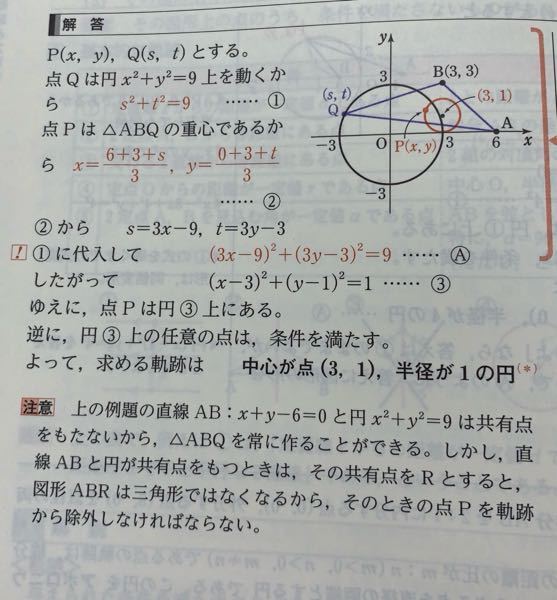 解答
P(x, y), Q(s, t) とする。
点 Q は円 x²+y²=9 上を動くか
ら s²+t²=9 …… ①
点 P は △ABQ の重心であるか
ら x=\frac{6+3+s}{3}, y=\frac{0+3+t}{3}
…… ②
②から s=3x−9, t=3y−3
! ①に代入して (3x−9)²+(3y−3)²=9 …… Ⓐ
したがって (x−3)²+(y−1)²=1 …… ③
ゆえに，点 P は円 ③ 上にある。
逆に，円 ③ 上の任意の点は，条件を満たす。
よって，求める軌跡は 中心が点 (3, 1)，半径が 1 の円(*)
y
3
B(3, 3)
(s, t)
Q
(3, 1)
A
−3
O
3
6
x
P(x, y)
−3
注意 上の例題の直線 AB：x+y−6=0 と円 x²+y²=9 は共有点
をもたないから，△ABQ を常に作ることができる。しかし，直
線 AB と円が共有点をもつときは，その共有点を R とすると，
図形 ABR は三角形ではなくなるから，そのときの点 P を軌跡
から除外しなければならない。